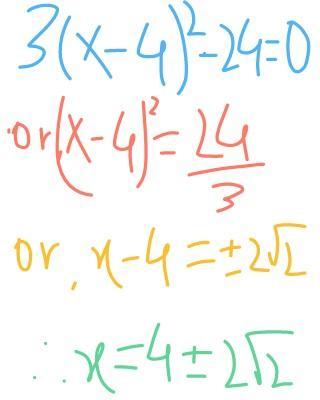 3(x-4)²-24=0
or(x-4)²=24/3
or, x-4=±2√2
∴ x=4±2√2